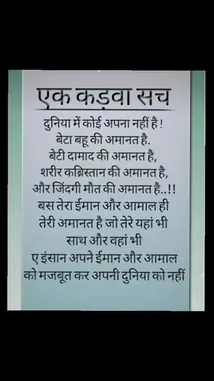 एक कड़वा सच
दुनिया में कोई अपना नहीं है !
बेटा बहू की अमानत है.
बेटी दामाद की अमानत है,
शरीर कब्रिस्तान की अमानत है,
और जिंदगी मौत की अमानत है..!!
बस तेरा ईमान और आमाल ही
तेरी अमानत है जो तेरे यहां भी
साथ और वहां भी
ए इंसान अपने ईमान और आमाल
को मजबूत कर अपनी दुनिया को नहीं